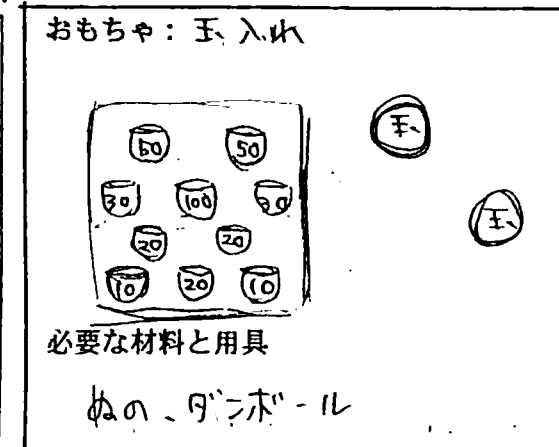 おもちゃ: 玉入れ
50 50
玉
30 100 30
玉
20 20
10 20 10
必要な材料と用具
ぬの、ダンボール